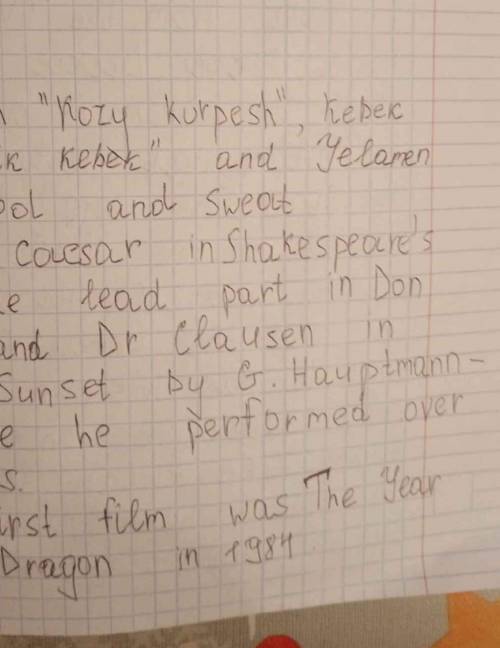 "Kozy kurpesh", kebek
k kebek" and Yelamen
ool and Sweat
Caesar in Shakespeare's
e lead part in Don
and Dr Clausen in
Sunset by G. Hauptmann-
e he performed over
s.
irst film was The Year
Dragon in 1984